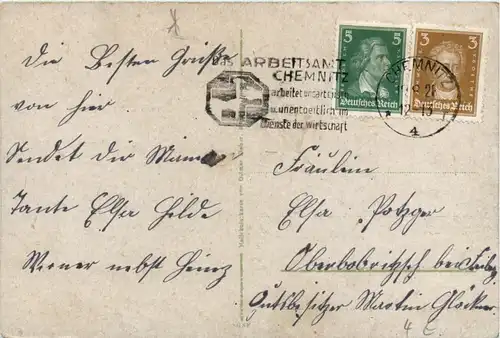 Die besten Grüße
von hier
Sendet dir Mama
Tante Elsa Hilde
Werner nebst Heinz
Das ARBEITSAMT
CHEMNITZ
arbeitet
unentgeltlich im
Dienste der Wirtschaft
5 5
Deutsches Reich
3 3
Deutsches Reich
CHEMNITZ
4
Fräulein
Elsa Potzger
Oberbobritzsch bei
Gutsbesitzer Martin Glöckner
4